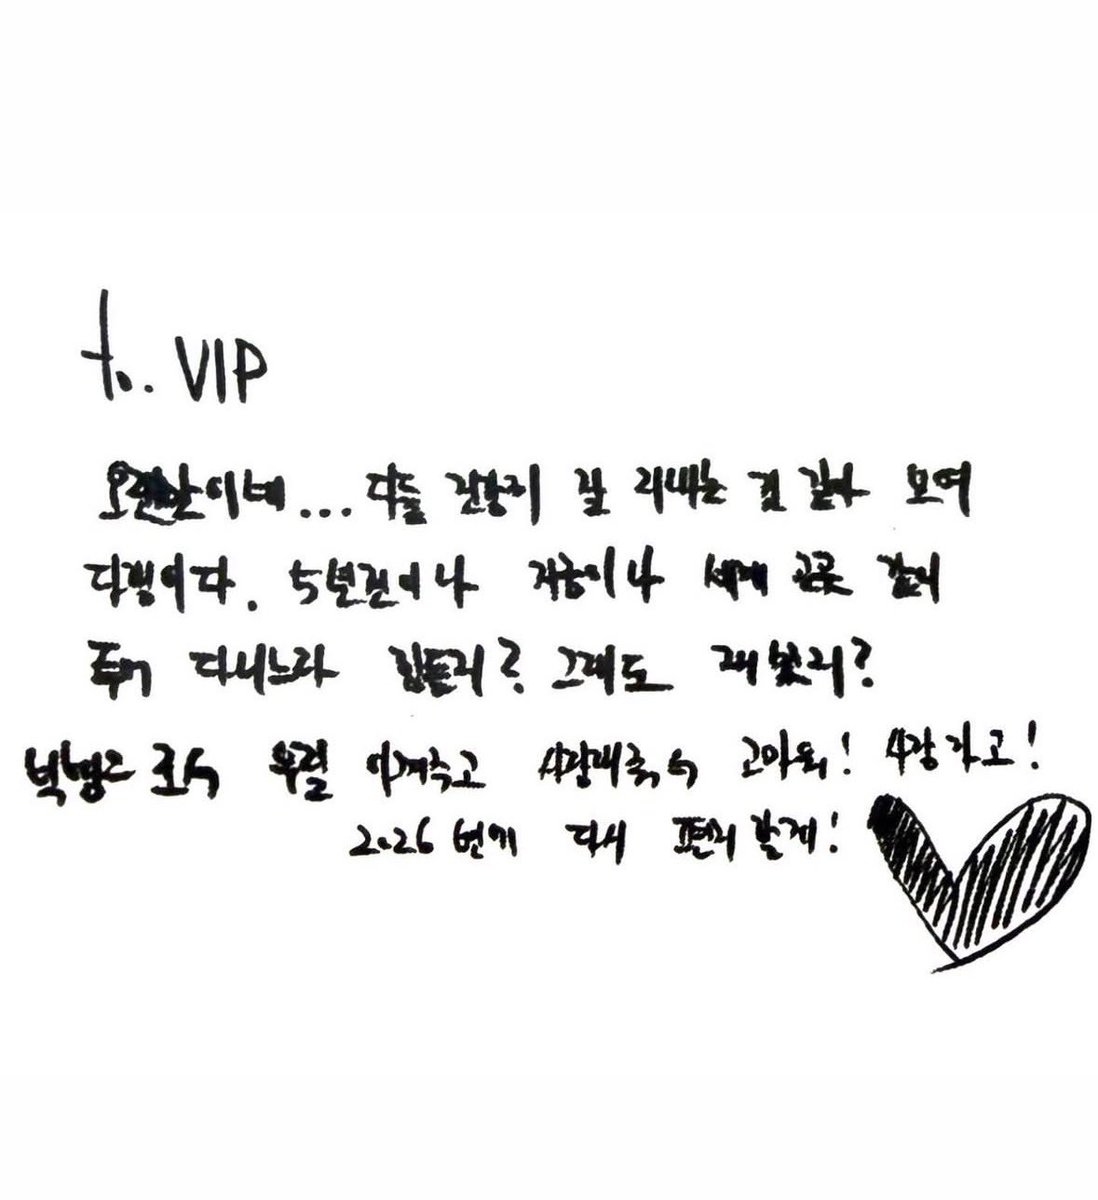 to. VIP
오랜만이네... 다들 건강히 잘 지내는 것 같아 보여
다행이다. 5년전이나 지금이나 세계 곳곳 같이
투어 다니느라 힘들지? 그래도 재밌지?
우릴 아껴주고 사랑해줘서 고마워! 사랑하고!
2026년에 다시 편지할게!